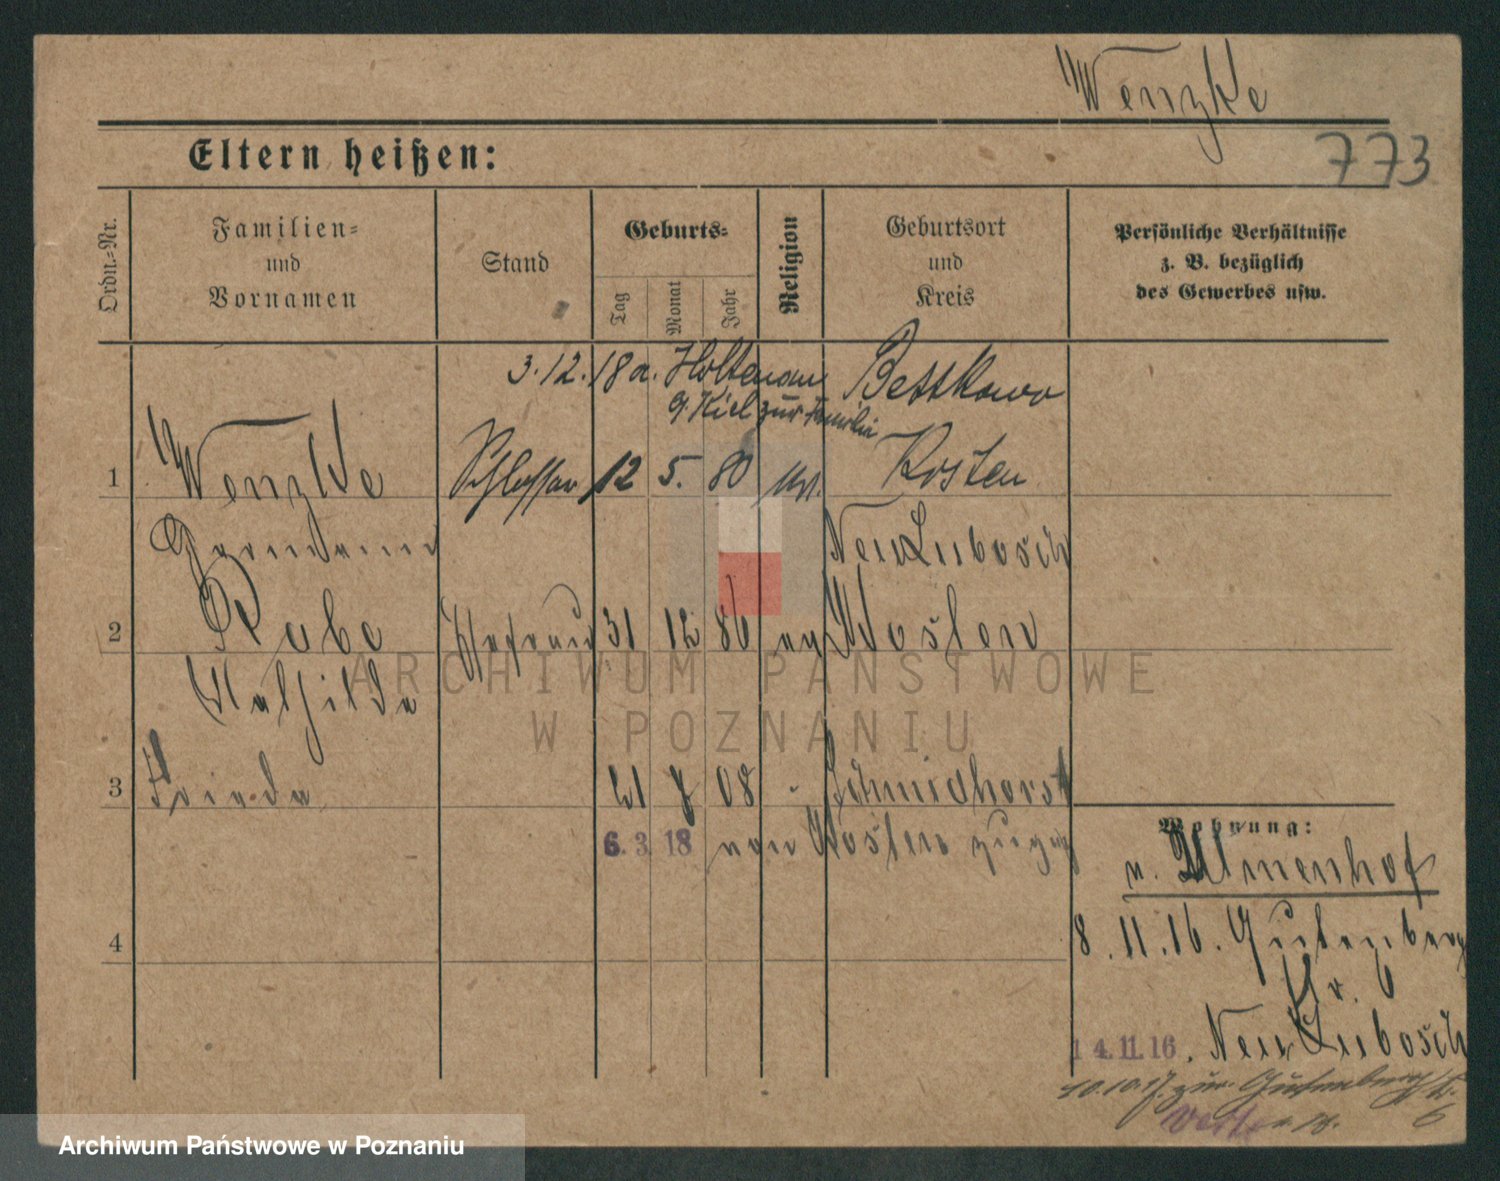 Wenzke
773
Eltern heißen:
Ordn.-Nr.
Familien-
und
Vornamen
Stand
Geburts-
Tag
Monat
Jahr
Religion
Geburtsort
und
Kreis
Persönliche Verhältnisse
z. B. bezüglich
des Gewerbes usw.
3.12.18 a. Holtenau Bettkowo
b. Kiel zur Familie
1 Wenzke Schlosser 12 5. 80 Kosten
Neu Lubosch
2 Rabe Ehefrau 31 12 80 ev Kosten
Mathilde
3 Frieda 21 8 08 Schmidhorst
6. 3. 18 von Kosten
Wohnung:
n. Ulmenhof
4
8.11.16. Gutenberg
Str. 6
14.11.16. Neu Lubosch
10.10.17. zur. Gutenberg Str.
6
ARCHIWUM PAŃSTWOWE
W POZNANIU
Archiwum Państwowe w Poznaniu